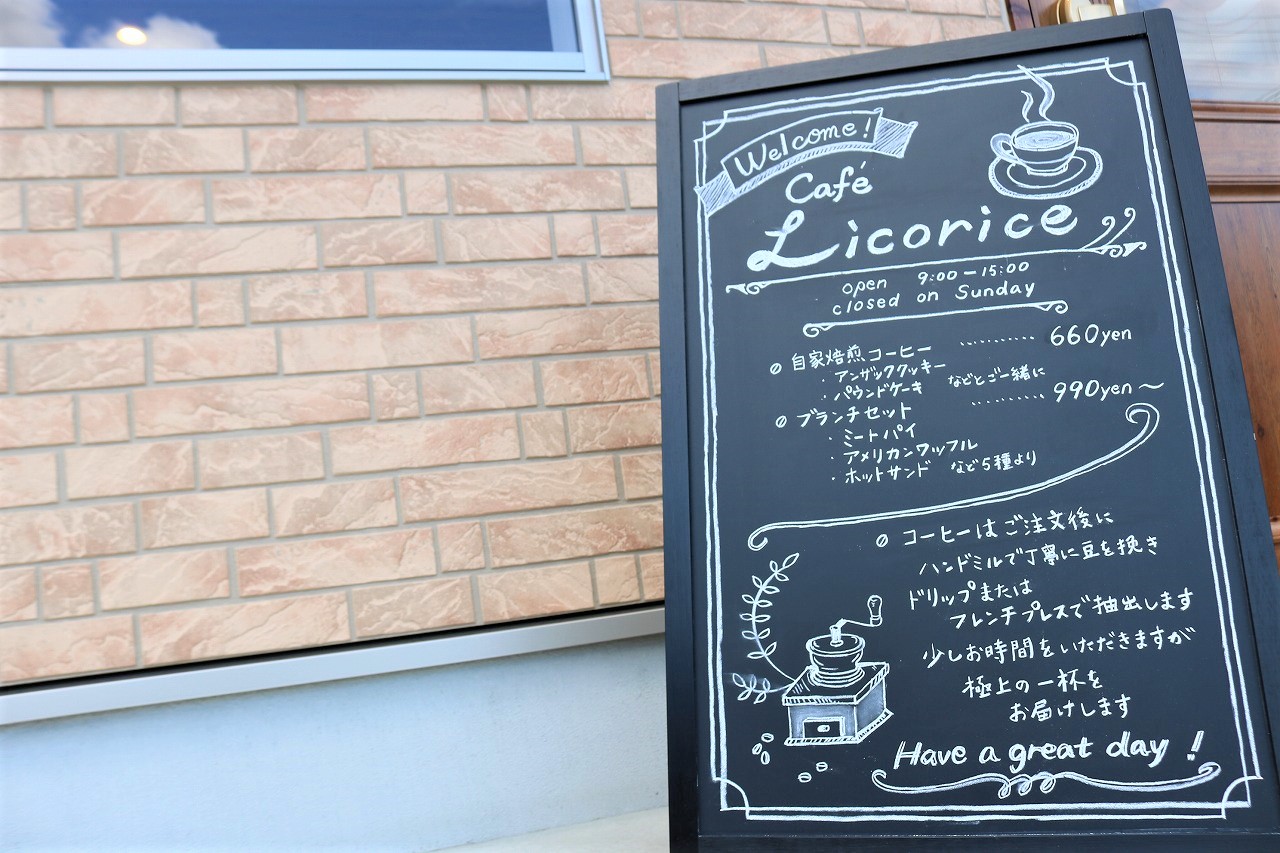 Welcome!
Café
Licorice
open 9:00-15:00
closed on Sunday
自家焙煎コーヒー ………… 660yen
・アンザッククッキー
・パウンドケーキ などとご一緒に
ブランチセット ………… 990yen～
・ミートパイ
・アメリカンワッフル
・ホットサンド など5種より
コーヒーはご注文後に
ハンドミルで丁寧に豆を挽き
ドリップまたは
フレンチプレスで抽出します
少しお時間をいただきますが
極上の一杯を
お届けします
Have a great day!